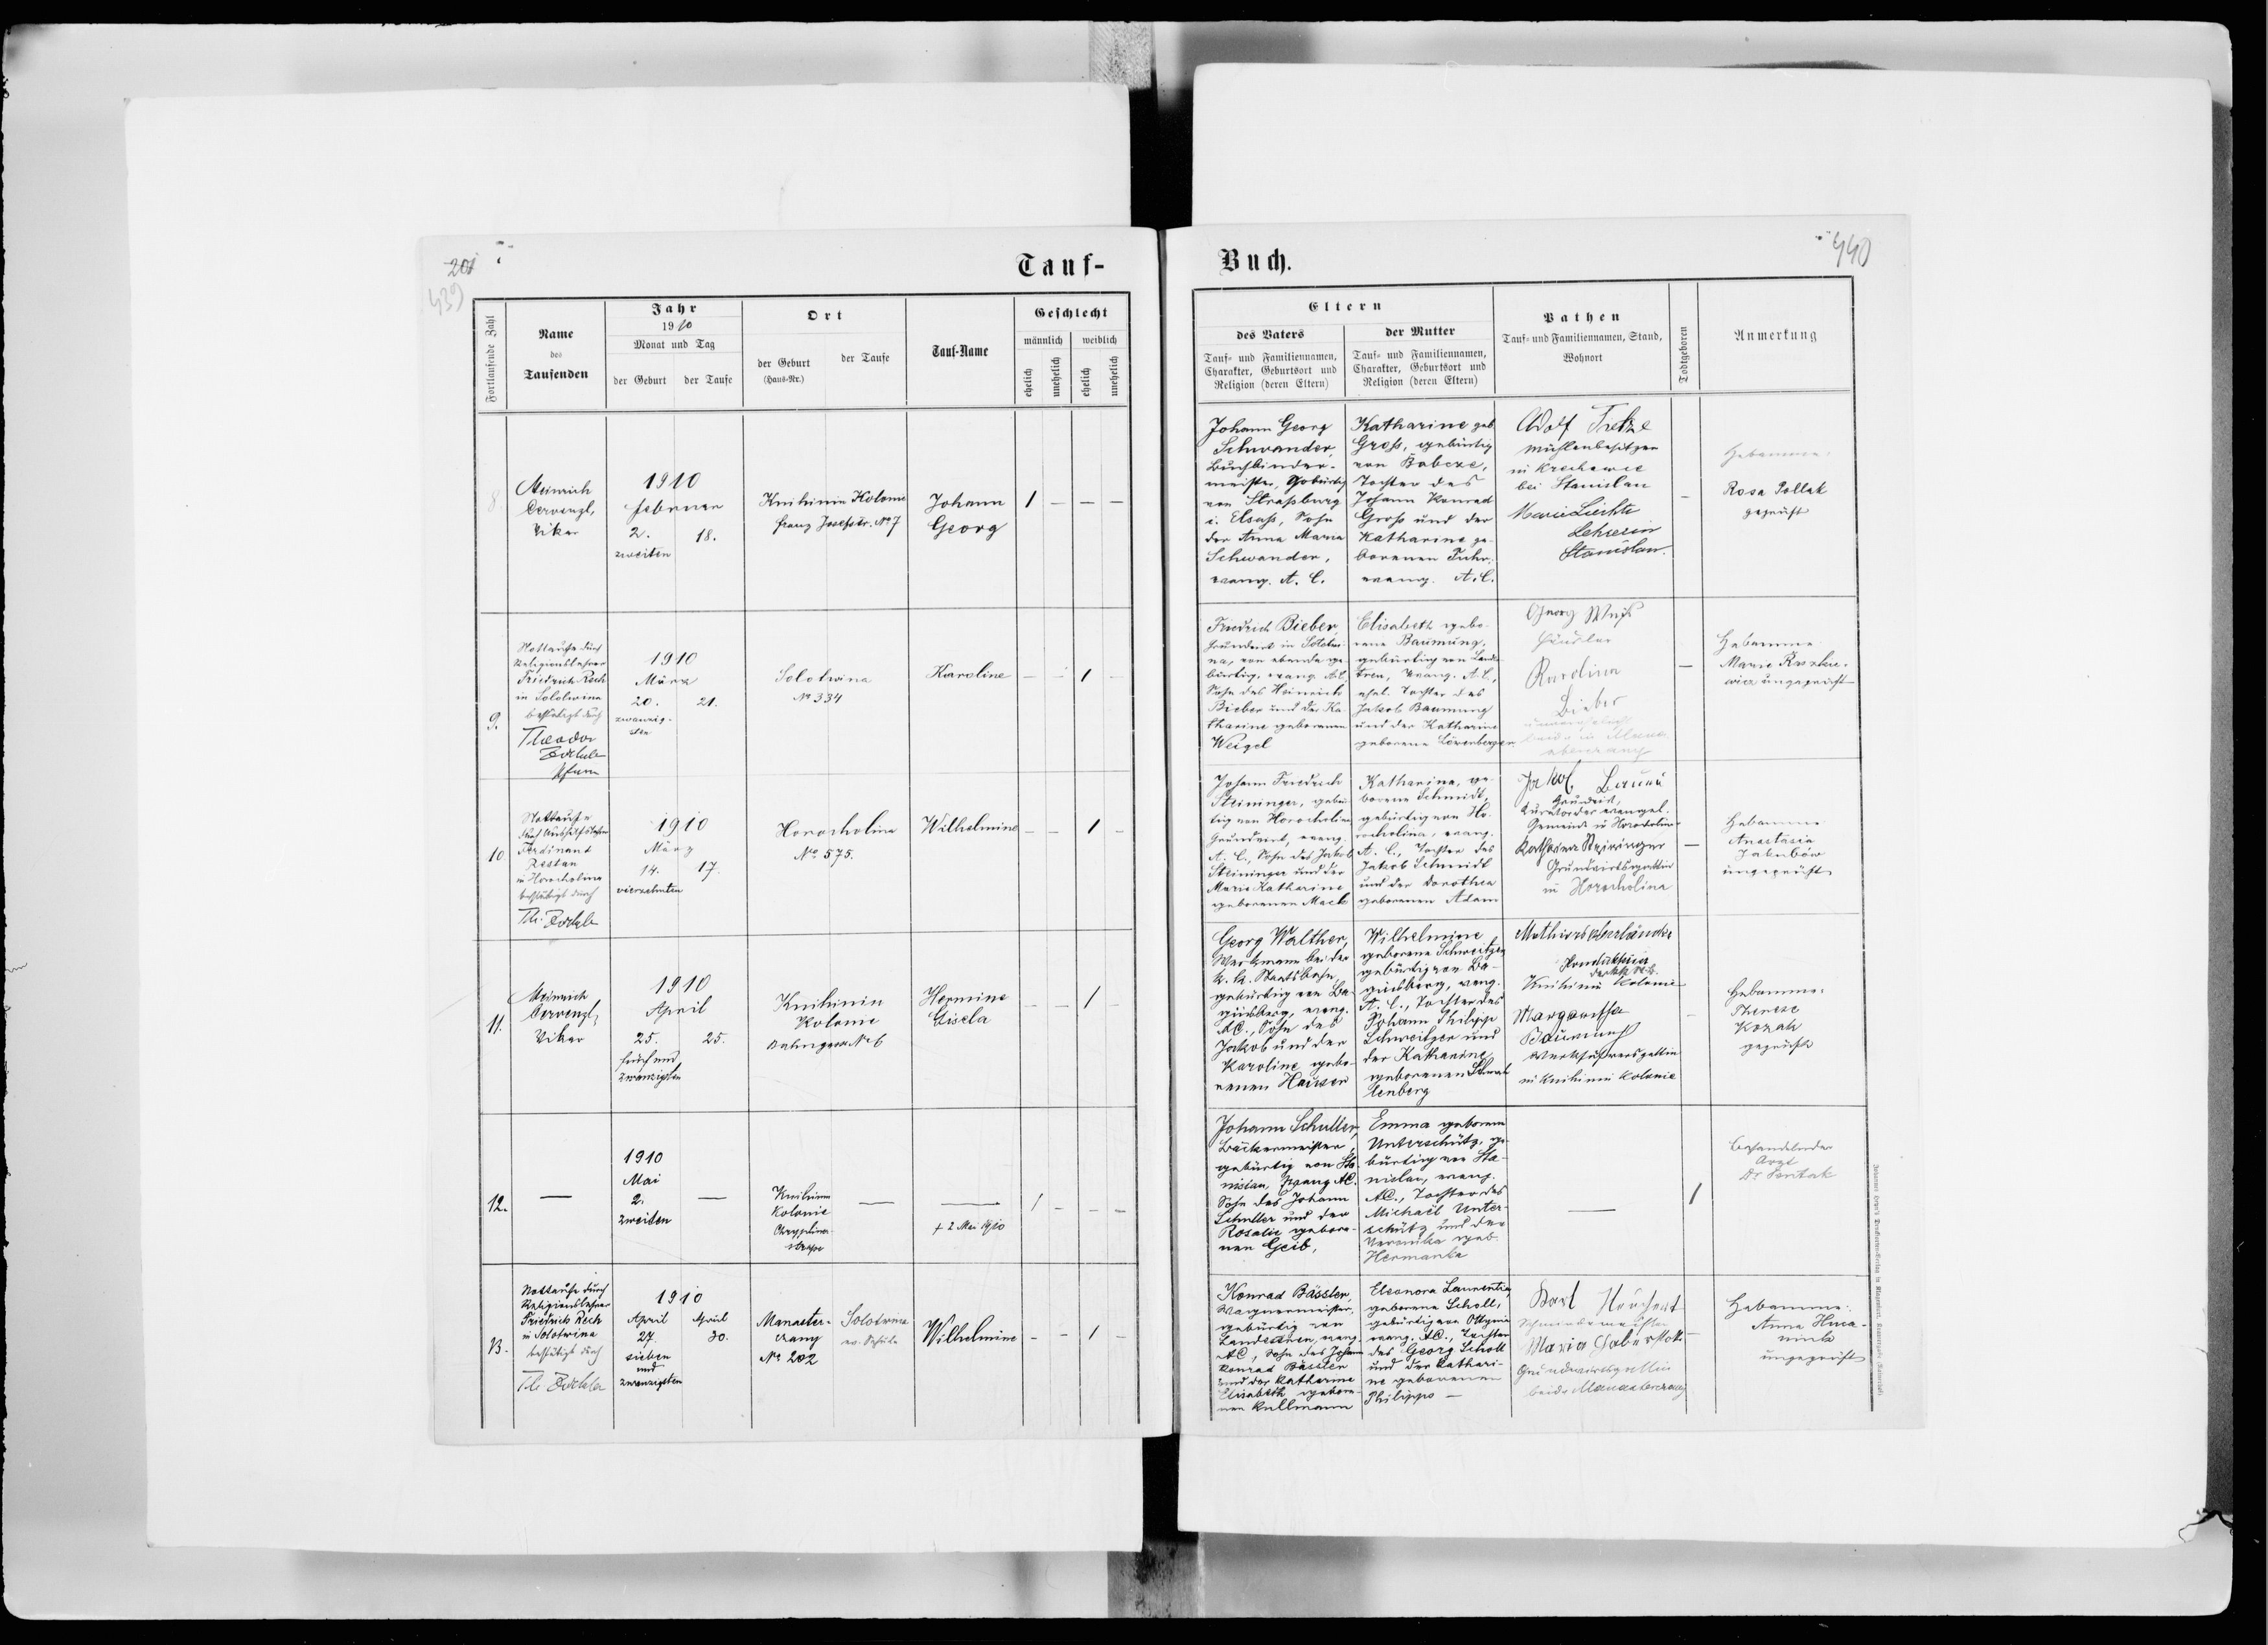 201
439
Tauf-
Buch.
440
Fortlaufende Zahl
Name
des
Taufenden
Jahr
1910
Monat und Tag
der Geburt
der Taufe
Ort
der Geburt
(Haus-Nr.)
der Taufe
Tauf-Name
Geschlecht
männlich
weiblich
ehelich
unehelich
ehelich
unehelich
Eltern
des Vaters
Tauf- und Familiennamen,
Charakter, Geburtsort und
Religion (deren Eltern)
der Mutter
Tauf- und Familiennamen,
Charakter, Geburtsort und
Religion (deren Eltern)
Pathen
Tauf- und Familiennamen, Stand,
Wohnort
Todtgeboren
Anmerkung
8.
Heinrich
Vikar
1910
Februar
2.
18.
zweiten
Knihinin Kolonie
Franz Josefstr. No 7
Johann
Georg
1 — — —
Johann Georg
Schwander,
Buchbinder-
meister, gebürtig
von Straßburg
i. Elsaß, Sohn
der Anna Maria
Schwander,
evang. A. C.
Katharine geb
Groß, gebürtig
von Babcze,
Tochter des
Johann Konrad
Groß und der
Katharine ge-
borenen Fuhr,
evang. A. C.
Adolf Tietze
Mühlenbesitzer
in Krechowce
bei Stanislau
Marie
Lehrerin
Stanislau.
—
Hebamme:
Rosa Pollak
geprüft
9.
Nottaufe durch
Religionslehrer
Friedrich Rech
in Solotwina
bestätigt durch
Theodor
Zöckler
Pfarrer
1910
März
20.
21.
zwanzig-
sten
Solotwina
No 334
Karoline
— — 1 —
Friedrich Bieber,
Grundwirt in Solotwi-
na, von ebenda ge-
bürtig, evang. A.C.,
Sohn des Heinrich
Bieber und der Ka-
tharine geborenen
Weigel
Elisabeth gebo-
rene Baumung,
gebürtig von Lands-
tren, evang. A. C.,
ehel. Tochter des
Jakob Baumung
und der Katharine
geborene Löwenberger
Georg
Händler
Karolina
Bieber
—
Hebamme
Marie
ungeprüft
10.
Nottaufe
durch Aushilfslehrer
Ferdinand
in Horocholina
bestätigt durch
Th. Zöckler
1910
März
14.
17.
vierzehnten
Horocholina
No. 575.
Wilhelmine
— — 1 —
Johann Friedrich
Steininger, gebür-
tig von Horocholina
Grundwirt, evang.
A. C., Sohn des Jakob
Steininger und der
Marie Katharine
geborenen Mack
Katharina, ge-
borene Schmidt,
gebürtig von Ho-
rocholina, evang.
A. C., Tochter des
Jakob Schmidt
und der Dorothea
geborenen Adam
Jakob
Grundwirt,
Kurator der evangel.
Gemeinde in Horocholina
Katharina Steininger
Grundwirtsgattin
in Horocholina
—
Hebamme
Anastasia
Jakubów
ungeprüft
11.
Heinrich
Vikar
1910
April
25.
25.
fünfund
zwanzigsten
Knihinin
Kolonie
Bahngasse No 6
Hermine
Gisela
— — 1 —
Georg Walther,
Werkmann bei der
k. k. Staatsbahn,
gebürtig von Ba-
ginsberg, evang.
A.C., Sohn des
Jakob und der
Karoline gebo-
renen Hauser
Wilhelmine
geborene Schweitzer
gebürtig von Ba-
ginsberg, evang.
A. C., Tochter des
Johann Philipp
Schweitzer und
der Katharine
geborenen
lenberg
Mathias Oberländer
Kondukteur
der k.k. St.B.
Knihinin Kolonie
Margaretha
Baumung
Werkführersgattin
in Knihinin Kolonie
—
Hebamme:
Therese
Kozak
geprüft
12.
—
1910
Mai
2.
—
zweiten
Knihinin
Kolonie
straße
—
—
+ 2 Mai 1910
1 — — —
Johann Schuller,
Bäckermeister,
gebürtig von Sta-
nislau, evang. A.C.
Sohn des Johann
Schuller und der
Rosalie gebore-
nen Geib,
Emma geborene
Unterschütz, ge-
bürtig von Sta-
nislau, evang.
A.C., Tochter des
Michael Unter-
schütz und der
Veronika geb.
Hermanka
—
1
Behandelnder
Arzt
13.
Nottaufe durch
Religionslehrer
Friedrich Rech
in Solotwina
bestätigt durch
Th. Zöckler
1910
April
April
27.
30.
sieben
und
zwanzigsten
Manaster-
czany
No 202
Solotwina
ev. Schule
Wilhelmine
— — 1 —
Konrad Bässler,
Wagnermeister,
gebürtig von
Landestreu, evang.
A.C, Sohn des Johann
Konrad Bässler
und der Katharine
Elisabeth gebore-
nen Kullmann
Eleonora Laurentia,
geborene Scholl,
gebürtig von Ottynia
evang. A.C., Tochter
des Georg Scholl
und der Kathari-
ne geborenen
Philipps —
Karl
Schmiedemeister
Maria Haberstock
Grundwirtsgattin
beide Manasterczany
—
Hebamme:
Anna
ungeprüft